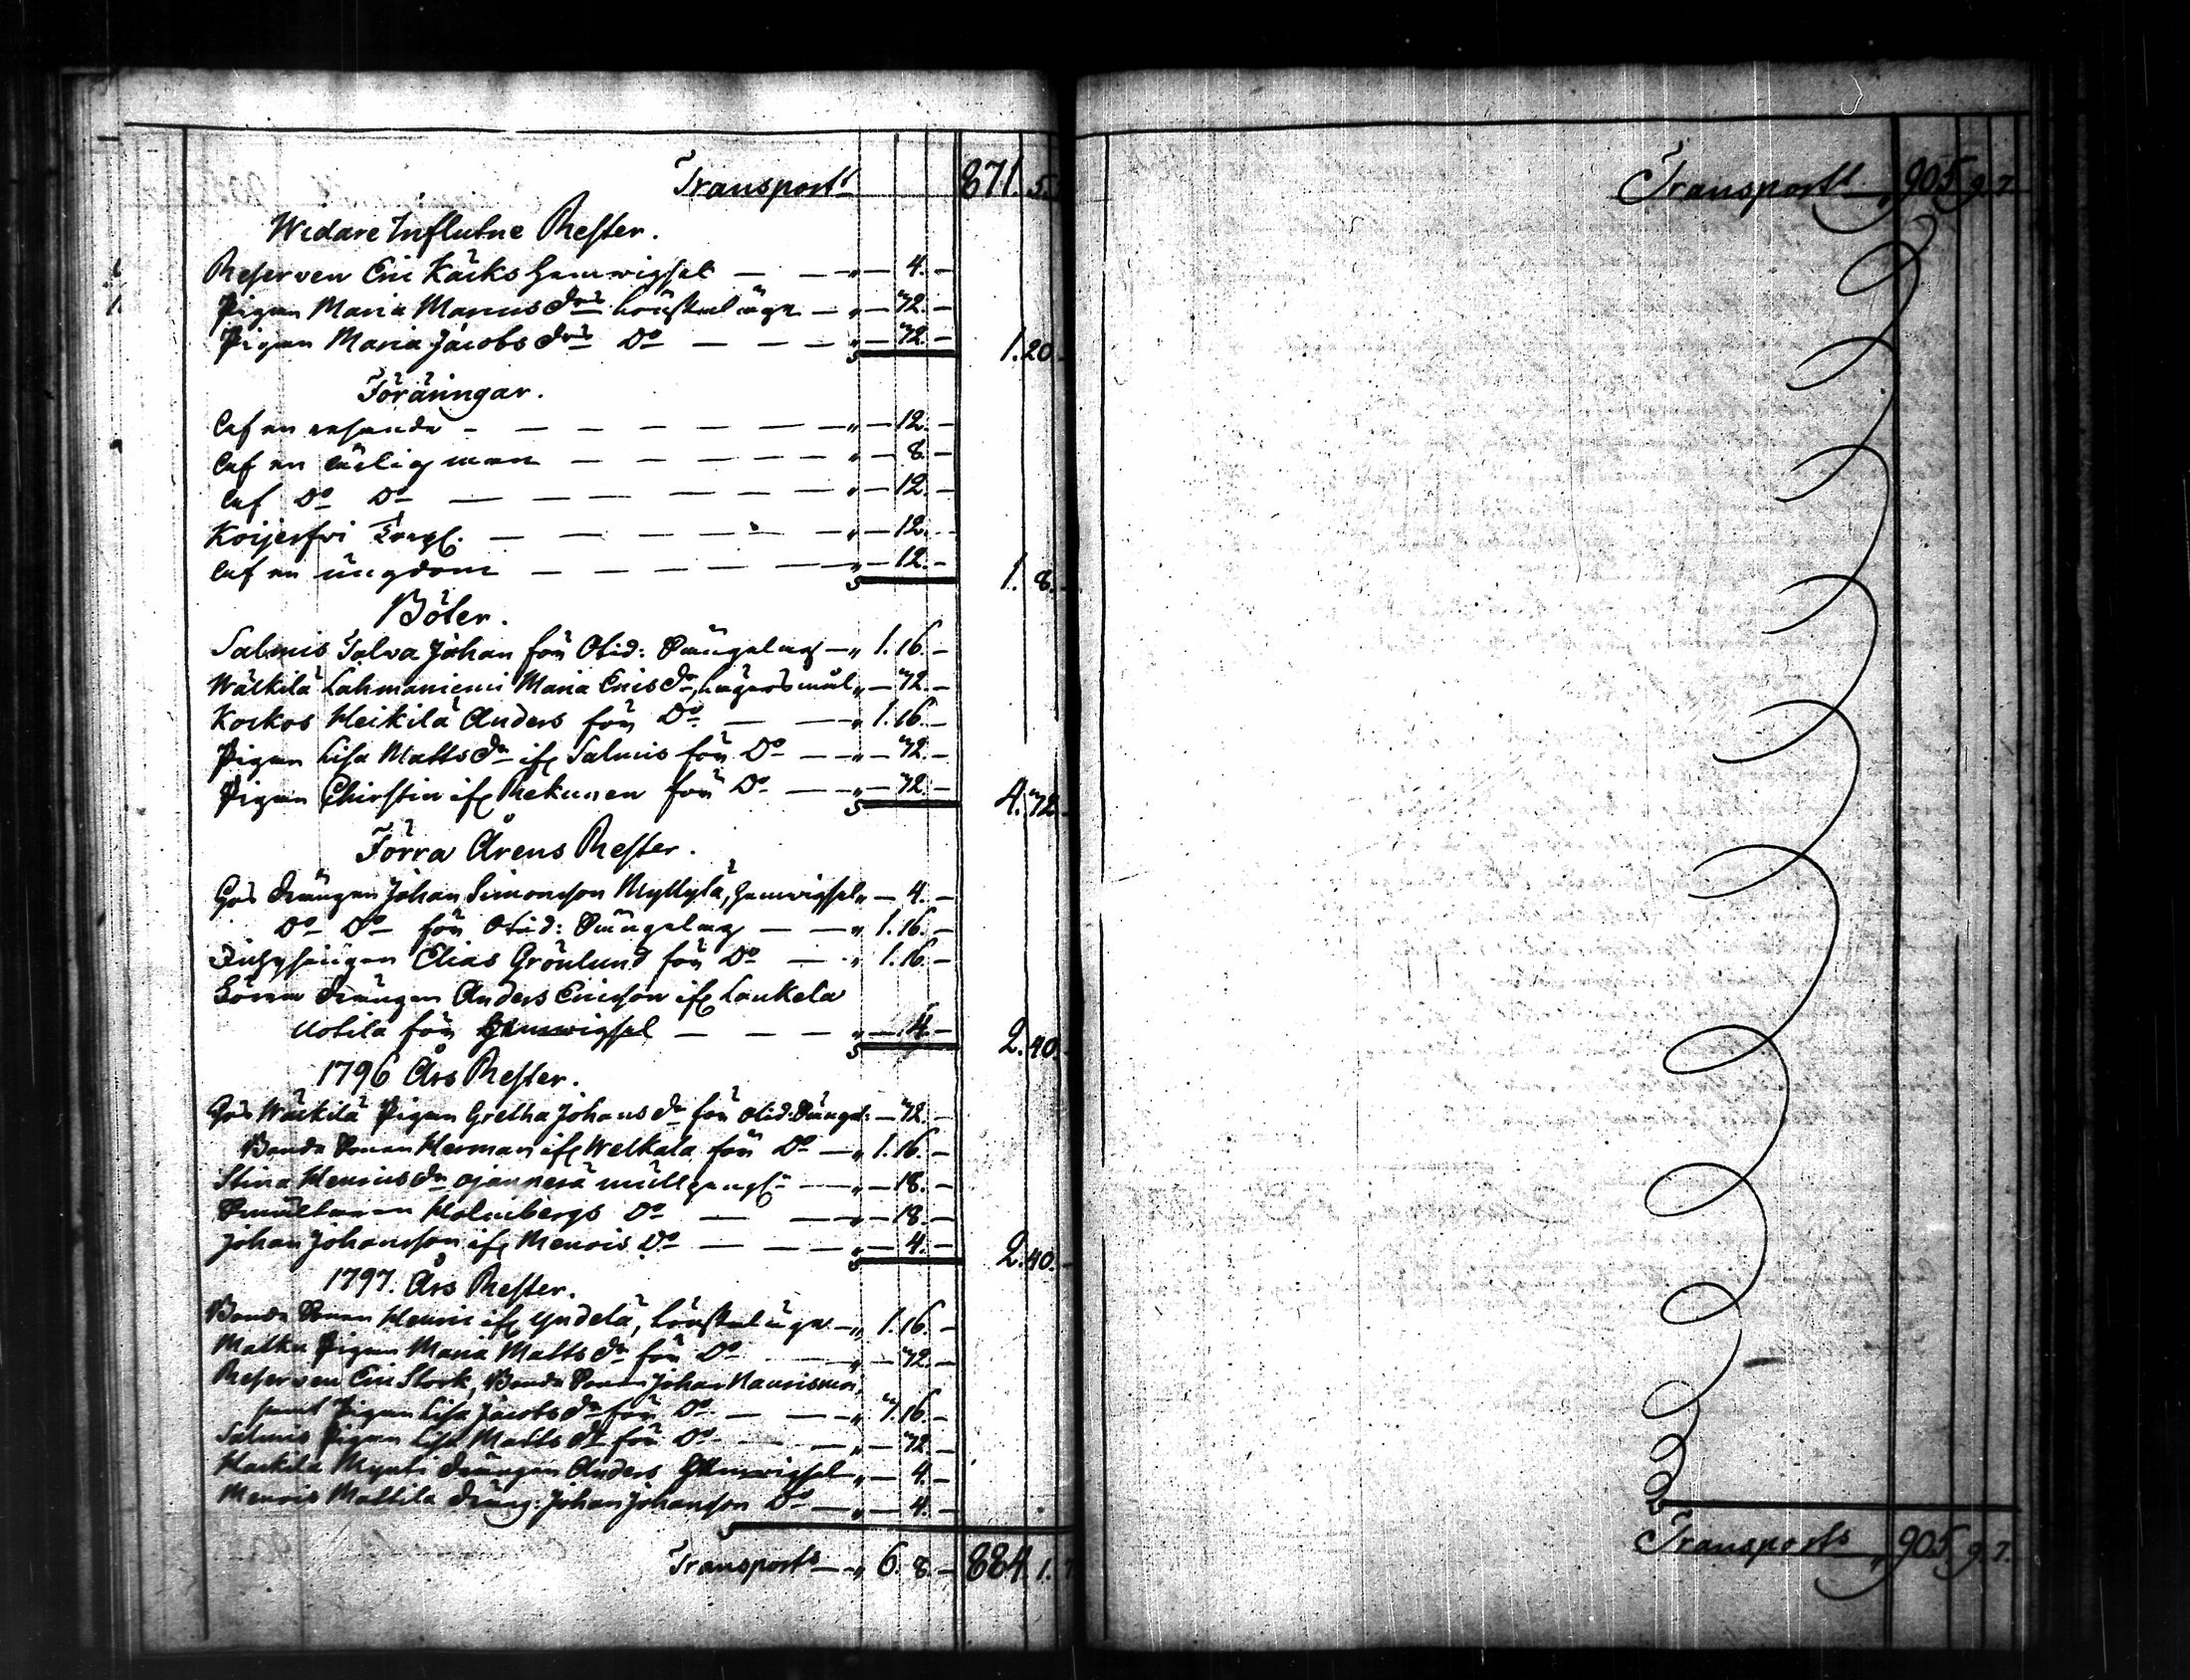 Transport 871. 5.
Widare Influtne Rester.
Reserven Eric Käcks hemwigsel — — " — 4. —
Pigan Maria Marcus dr. Lönskeläge — " — 32. —
Pigan Maria Jacobs dr. Do — — — " — 32. — 1. 20.
Föräringar.
Af en resande — — — — — — — " — 12. —
Af en ärlig man — — — — — — " — 8. —
Af Do Do — — — — — — " — 12. —
— — — — — — " — 12. —
Af en ungdom — — — — — — " — 12. — 1. 8.
Böter.
Salmis Talva Johan för Otid: Sängelag — " 1. 16. —
Wälkilä Lahmaniemi Maria Erics dr, Lägersmål " — 32. —
Kockos Heikilä Anders för Do — — " 1. 16. —
Pigan Lisa Matts dr if. Salmis för Do — " — 32. —
Pigan Chirstin if. Rekunen för Do — " — 32. — 4. 32.
Förra Årens Rester.
Gos drängen Johan Simonsson Myllylä, hemwigsel " — 4. —
Do Do för Otid: Sängelag — — " 1. 16. —
Elias Grönlund för Do — " 1. 16. —
drängen Anders Ericsson if. Laukela
Uotila för hemwigsel — — — " — 4. — 2. 40.
1796 Års Rester.
Gos Wälkilä Pigan Gretha Johans dr för otid: Sängel: — 32. —
Bonde Sonen Herman if. Welkala för Do — " 1. 16. —
Stina Henrics dr — " — 18. —
Holmbergs Do — — " — 18. —
Johan Johansson if. Menois Do — — — " — 4. — 2. 40. —
1797. Års Rester.
Bonde Sonen Henric if. Yndelä, Lönskeläge — " 1. 16. —
Pigan Maria Matts dr för Do — " — 32. —
Reserven Eric Stork, Bonde Sonen Johan
samt Pigan Lisa Jacobs dr för Do — — " 3. 16. —
Salmis Pigan Lisa Matts dr för Do — — " — 32. —
drängen Anders hemwigsel " — 4. —
Menois Mattila dräng: Johan Johansson Do — " — 4. —
Transport — " 6. 8. — 884. 1. 7
Transport " 905. 9. 7.
Transport " 905. 9. 7.